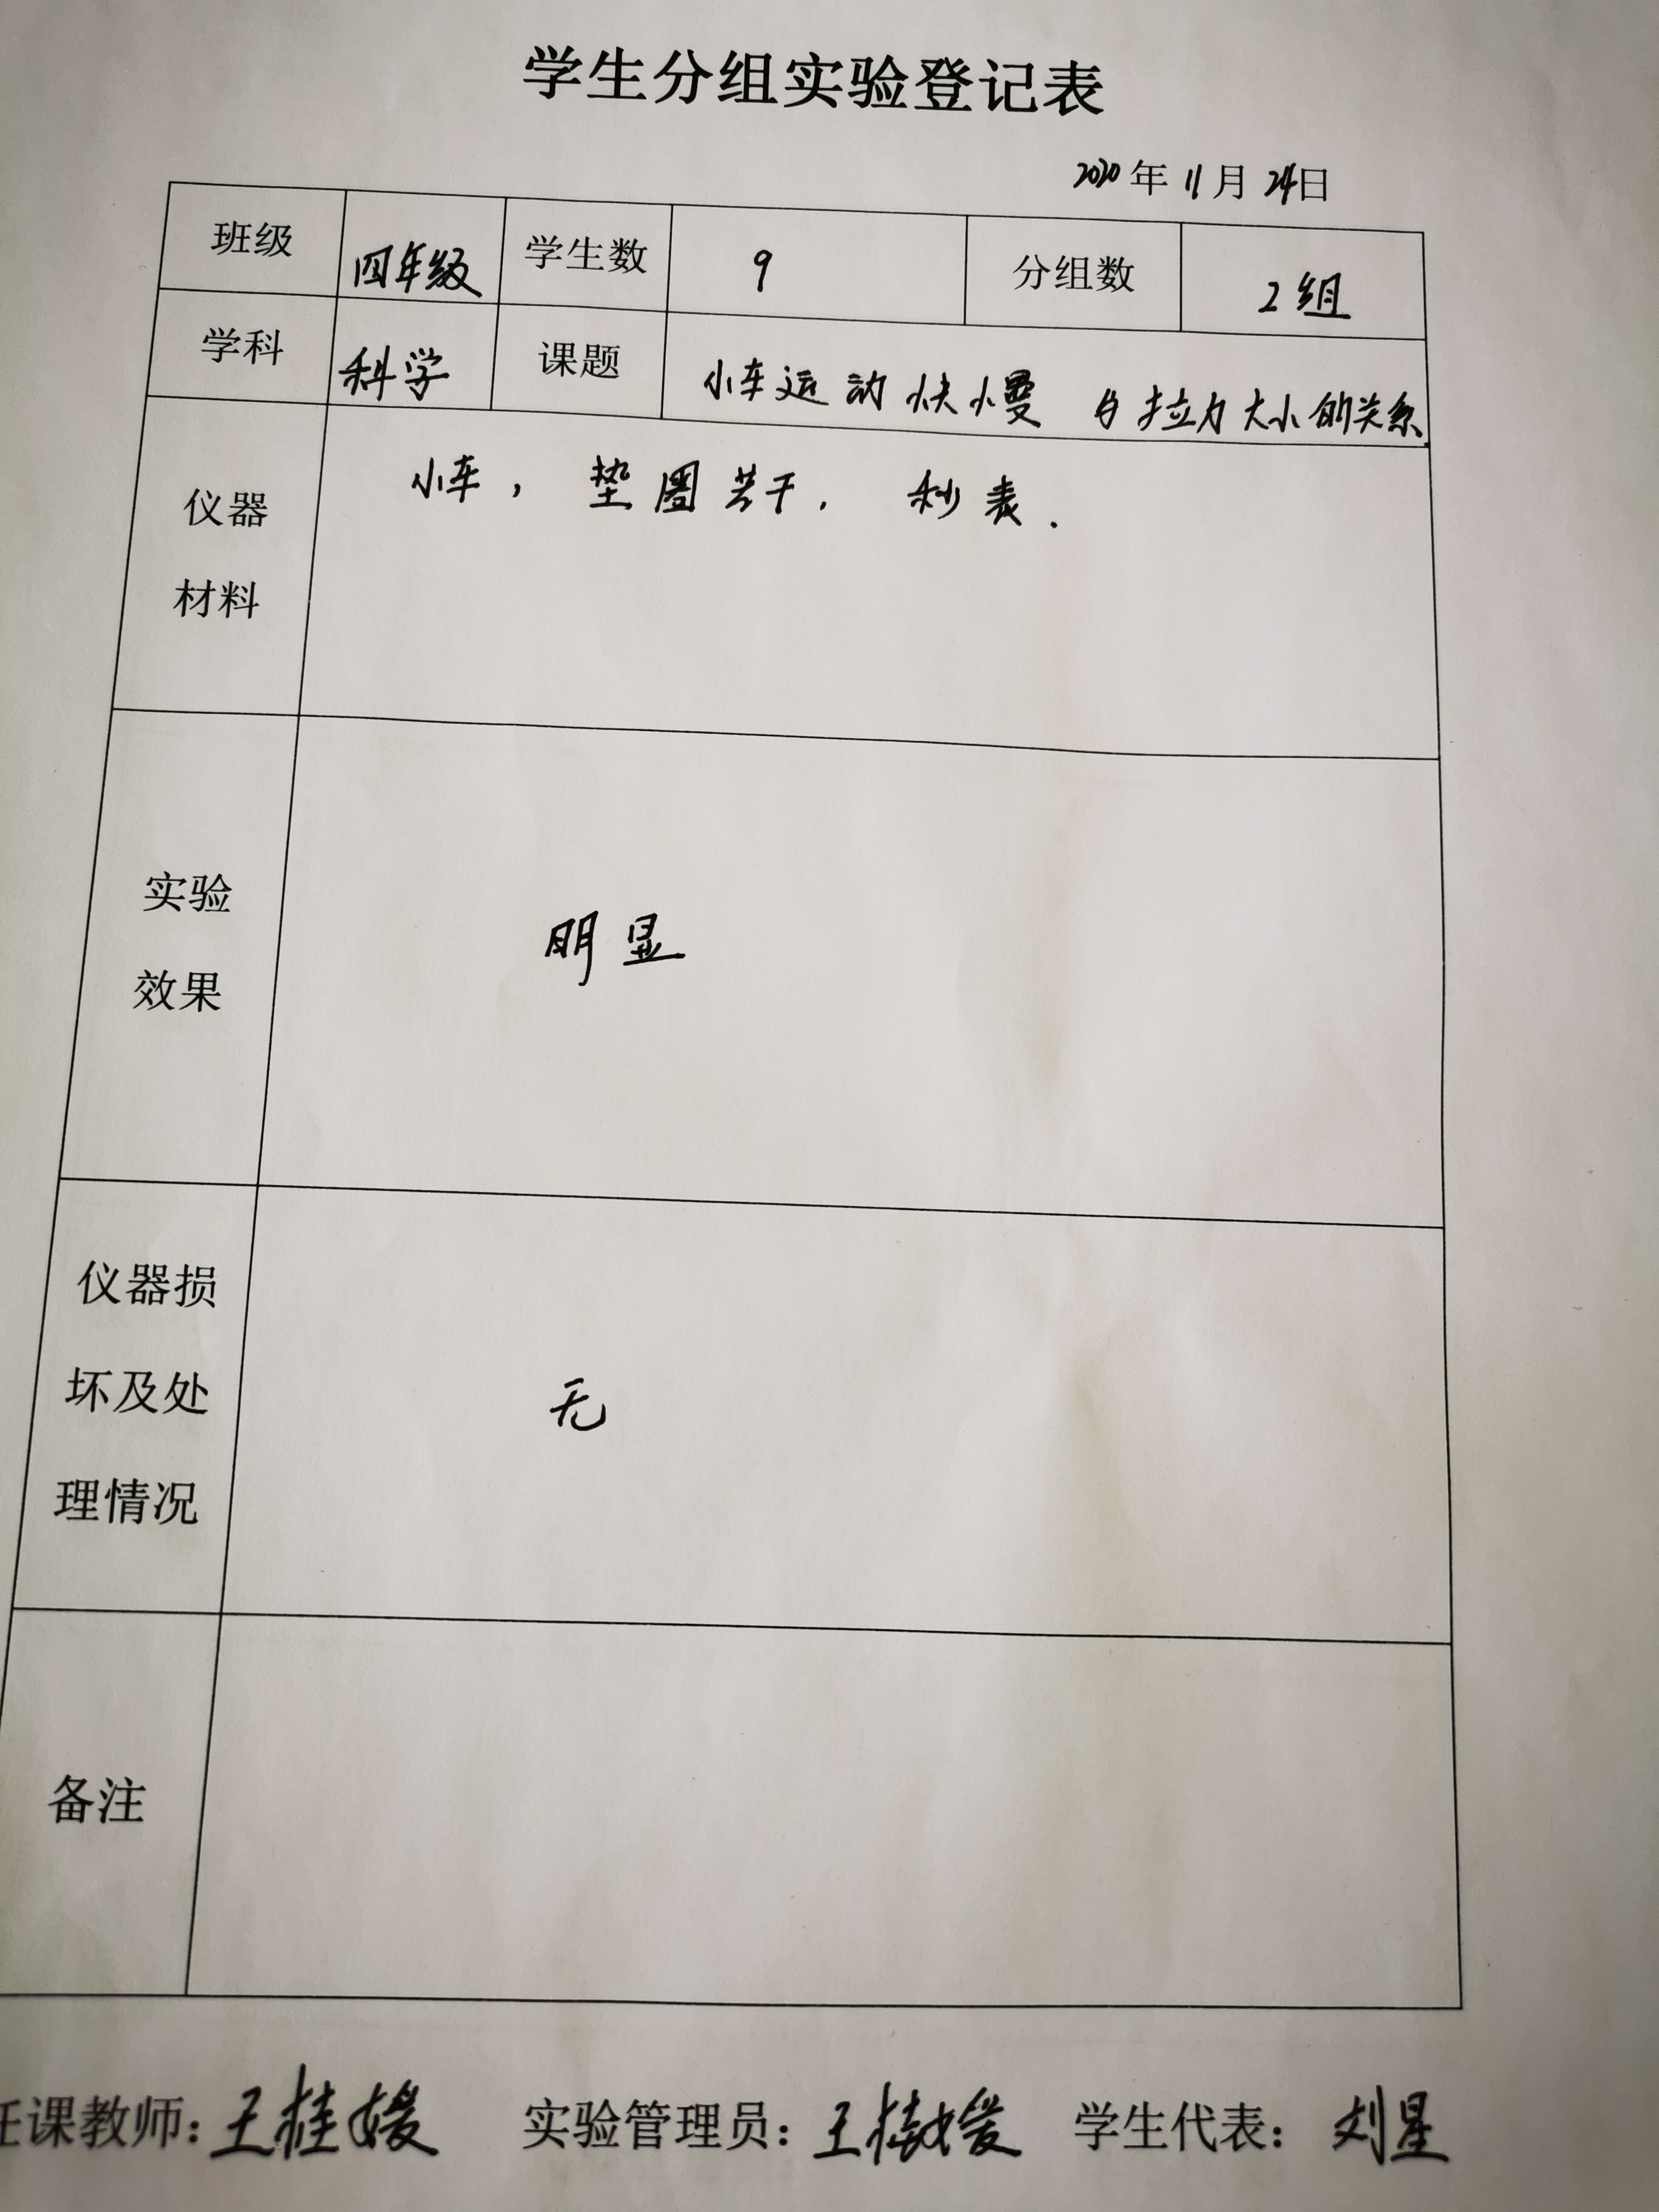 学生分组实验登记表
2020年11月24日
班级 四年级 学生数 9 分组数 2组
学科 科学 课题 小车运动快慢与拉力大小的关系.
仪器 小车, 垫圈若干. 秒表.
材料
实验 明显
效果
仪器损
坏及处 无
理情况
备注
任课教师:王桂媛 实验管理员:王桂媛 学生代表:刘星